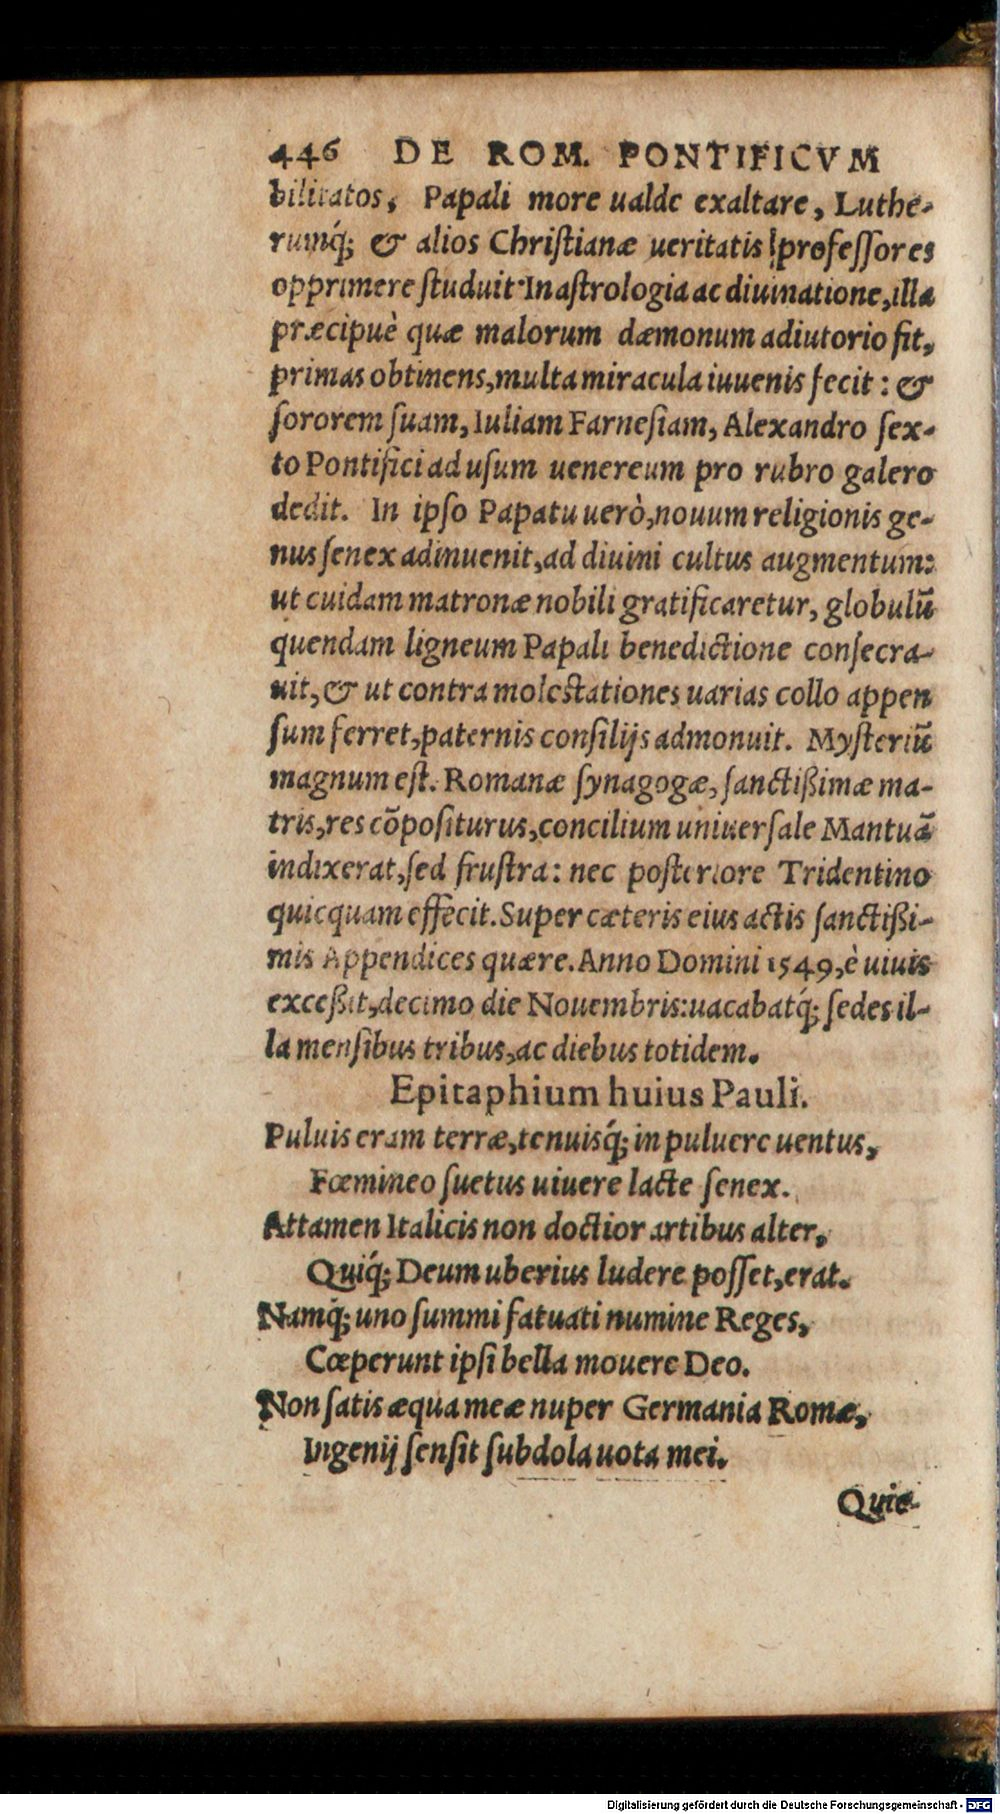 446 DE ROM. PONTIFICVM
bilitatos, Papali more ualde exaltare, Luthe-
rumq́; & alios Christianæ ueritatis professores
opprimere studuit. In astrologia ac diuinatione, illa
præcipuè quæ malorum dæmonum adiutorio fit,
primas obtinens, multa miracula iuuenis fecit: &
sororem suam, Iuliam Farnesiam, Alexandro sex-
to Pontifici ad usum uenereum pro rubro galero
dedit. In ipso Papatu uerò, nouum religionis ge-
nus senex adinuenit, ad diuini cultus augmentum:
ut cuidam matronæ nobili gratificaretur, globulũ
quendam ligneum Papali benedictione consecra-
uit, & ut contra molestationes uarias collo appen
sum ferret, paternis consilijs admonuit. Mysteriũ
magnum est. Romanæ synagogæ, sanctißimæ ma-
tris, res cõpositurus, concilium uniuersale Mantuã
indixerat, sed frustra: nec posteriore Tridentino
quicquam effecit. Super cæteris eius actis sanctißi-
mis Appendices quære. Anno Domini 1549, è uiuis
exceßit, decimo die Nouembris: uacabatq́; sedes il-
la mensibus tribus, ac diebus totidem.
Epitaphium huius Pauli.
Puluis eram terræ, tenuisq́; in puluere uentus,
Fœmineo suetus uiuere lacte senex.
Attamen Italicis non doctior artibus alter,
Quiq́; Deum uberius ludere posset, erat.
Namq́; uno summi fatuati numine Reges,
Cœperunt ipsi bella mouere Deo.
Non satis æqua meæ nuper Germania Romæ,
Ingenij sensit subdola uota mei.
Quie-
Digitalisierung gefördert durch die Deutsche Forschungsgemeinschaft - DFG